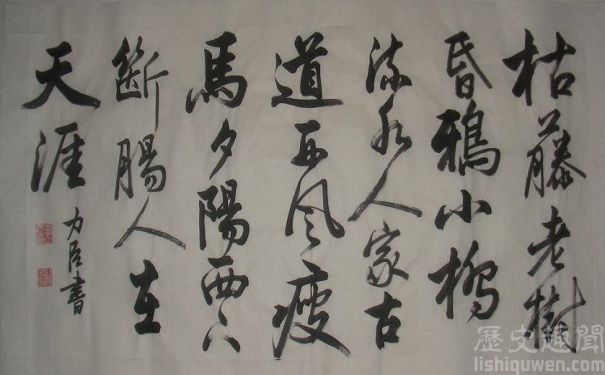 枯藤老樹
昏鴉小橋
流水人家古
道西風瘦
馬夕陽西下
斷腸人在
天涯
力臣書
歷史趣聞
lishiquwen.com